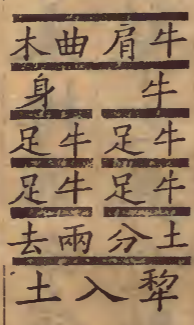 牛肩曲木
牛身
牛足牛足
牛足牛足
土分兩去
犂入土